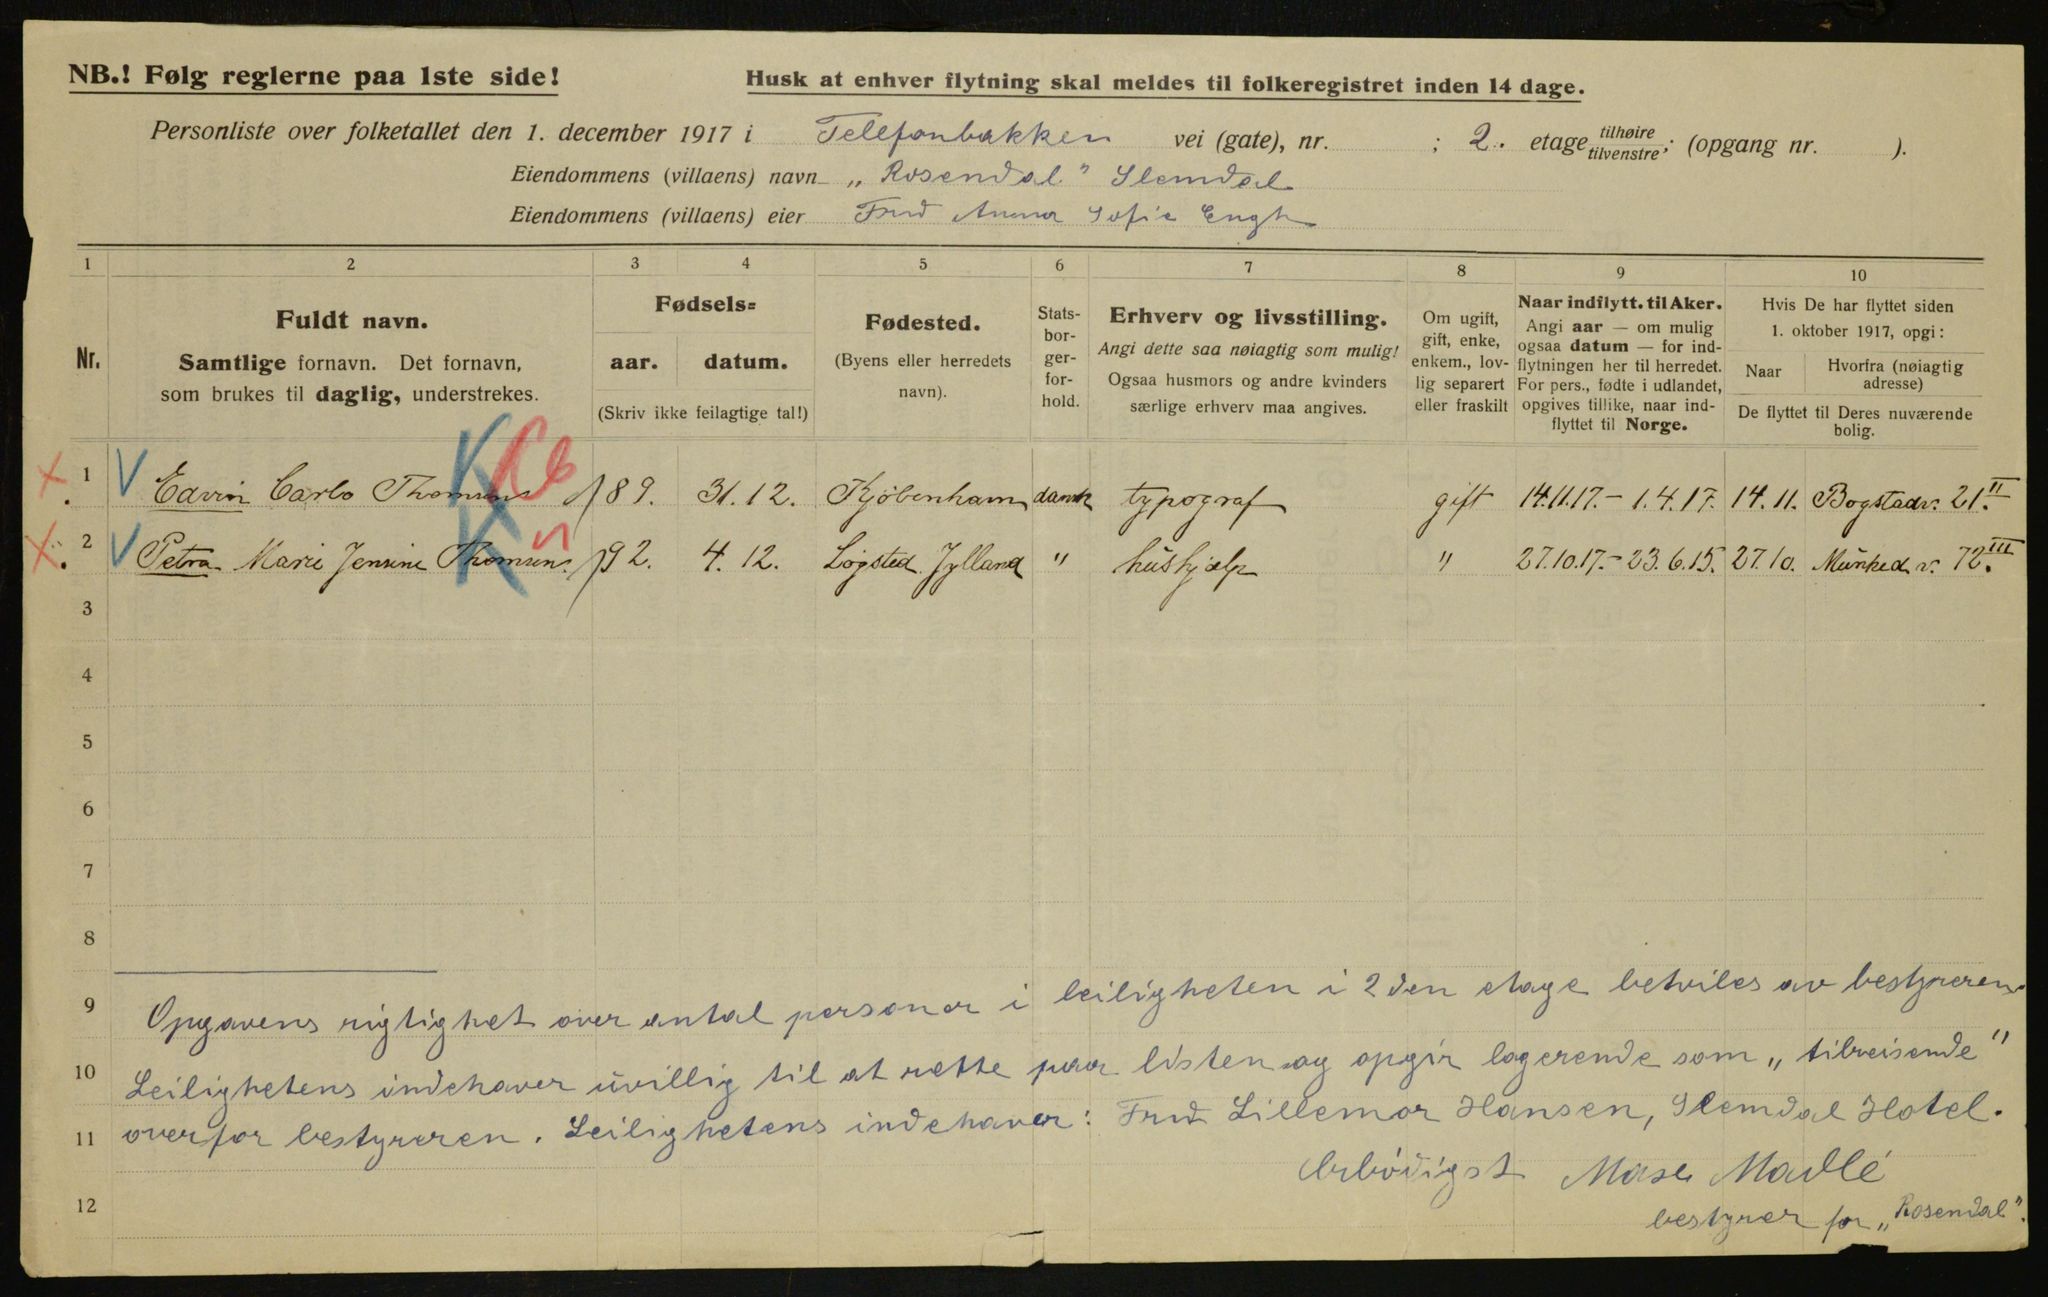 NB.! Følg reglerne paa 1ste side!
Husk at enhver flytning skal meldes til folkeregistret inden 14 dage.
Personliste over folketallet den 1. december 1917 i Telefonbakken vei (gate), nr. ; 2. etage tilhøire tilvenstre; (opgang nr. ).
Eiendommens (villaens) navn „Rosendal" Slemdal
Eiendommens (villaens) eier Fru Anna Sofie Engh
1 2 3 4 5 6 7 8 9 10
Nr.
Fuldt navn.
Samtlige fornavn. Det fornavn,
som brukes til daglig, understrekes.
Fødsels=
aar. datum.
(Skriv ikke feilagtige tal!)
Fødested.
(Byens eller herredets
navn).
Stats-
bor-
ger-
for-
hold.
Erhverv og livsstilling.
Angi dette saa nøiagtig som mulig!
Ogsaa husmors og andre kvinders
særlige erhverv maa angives.
Om ugift,
gift, enke,
enkem., lov-
lig separert
eller fraskilt
Naar indflytt. til Aker.
Angi aar — om mulig
ogsaa datum — for ind-
flytningen her til herredet.
For pers., fødte i udlandet,
opgives tillike, naar ind-
flyttet til Norge.
Hvis De har flyttet siden
1. oktober 1917, opgi:
Naar Hvorfra (nøiagtig
adresse)
De flyttet til Deres nuværende
bolig.
1 Edvin Carlo Thomsens 89. 31.12. Kjöbenhavn dansk typograf gift 14.11.17.- 1.4.17. 14.11. Bogstadv. 21.II
2 Petra Marie Jensine Thomsens 92. 4.12. Lögsted Jylland " hushjælp " 27.10.17.- 23.6.15. 27.10. Munked v. 72.III
3
4
5
6
7
8
9 Opgavens rigtighet over antal personer i leiligheten i 2den etage betviles av bestyreren.
10 Leilighetens indehaver uvillig til at rette paa listen og opgir logerende som „tilreisende"
11 overfor bestyreren. Leilighetens indehaver: Fru Lillemor Hansen, Slemdal Hotel.
Ærbödigst
12 bestyrer for „Rosendal".